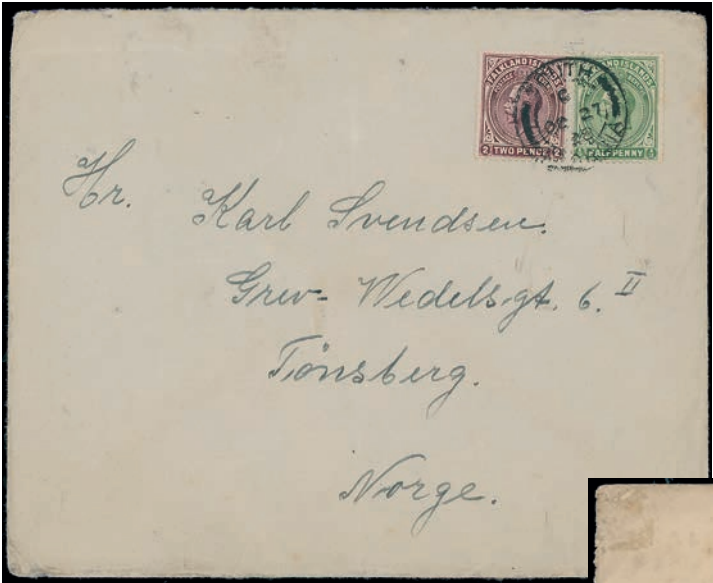 FALKLAND ISLANDS
2 TWO PENCE 2
HALFPENNY
Hr. Karl Svendsen.
Grev- Wedelsgt. 6. II
Tönsberg.
Norge.